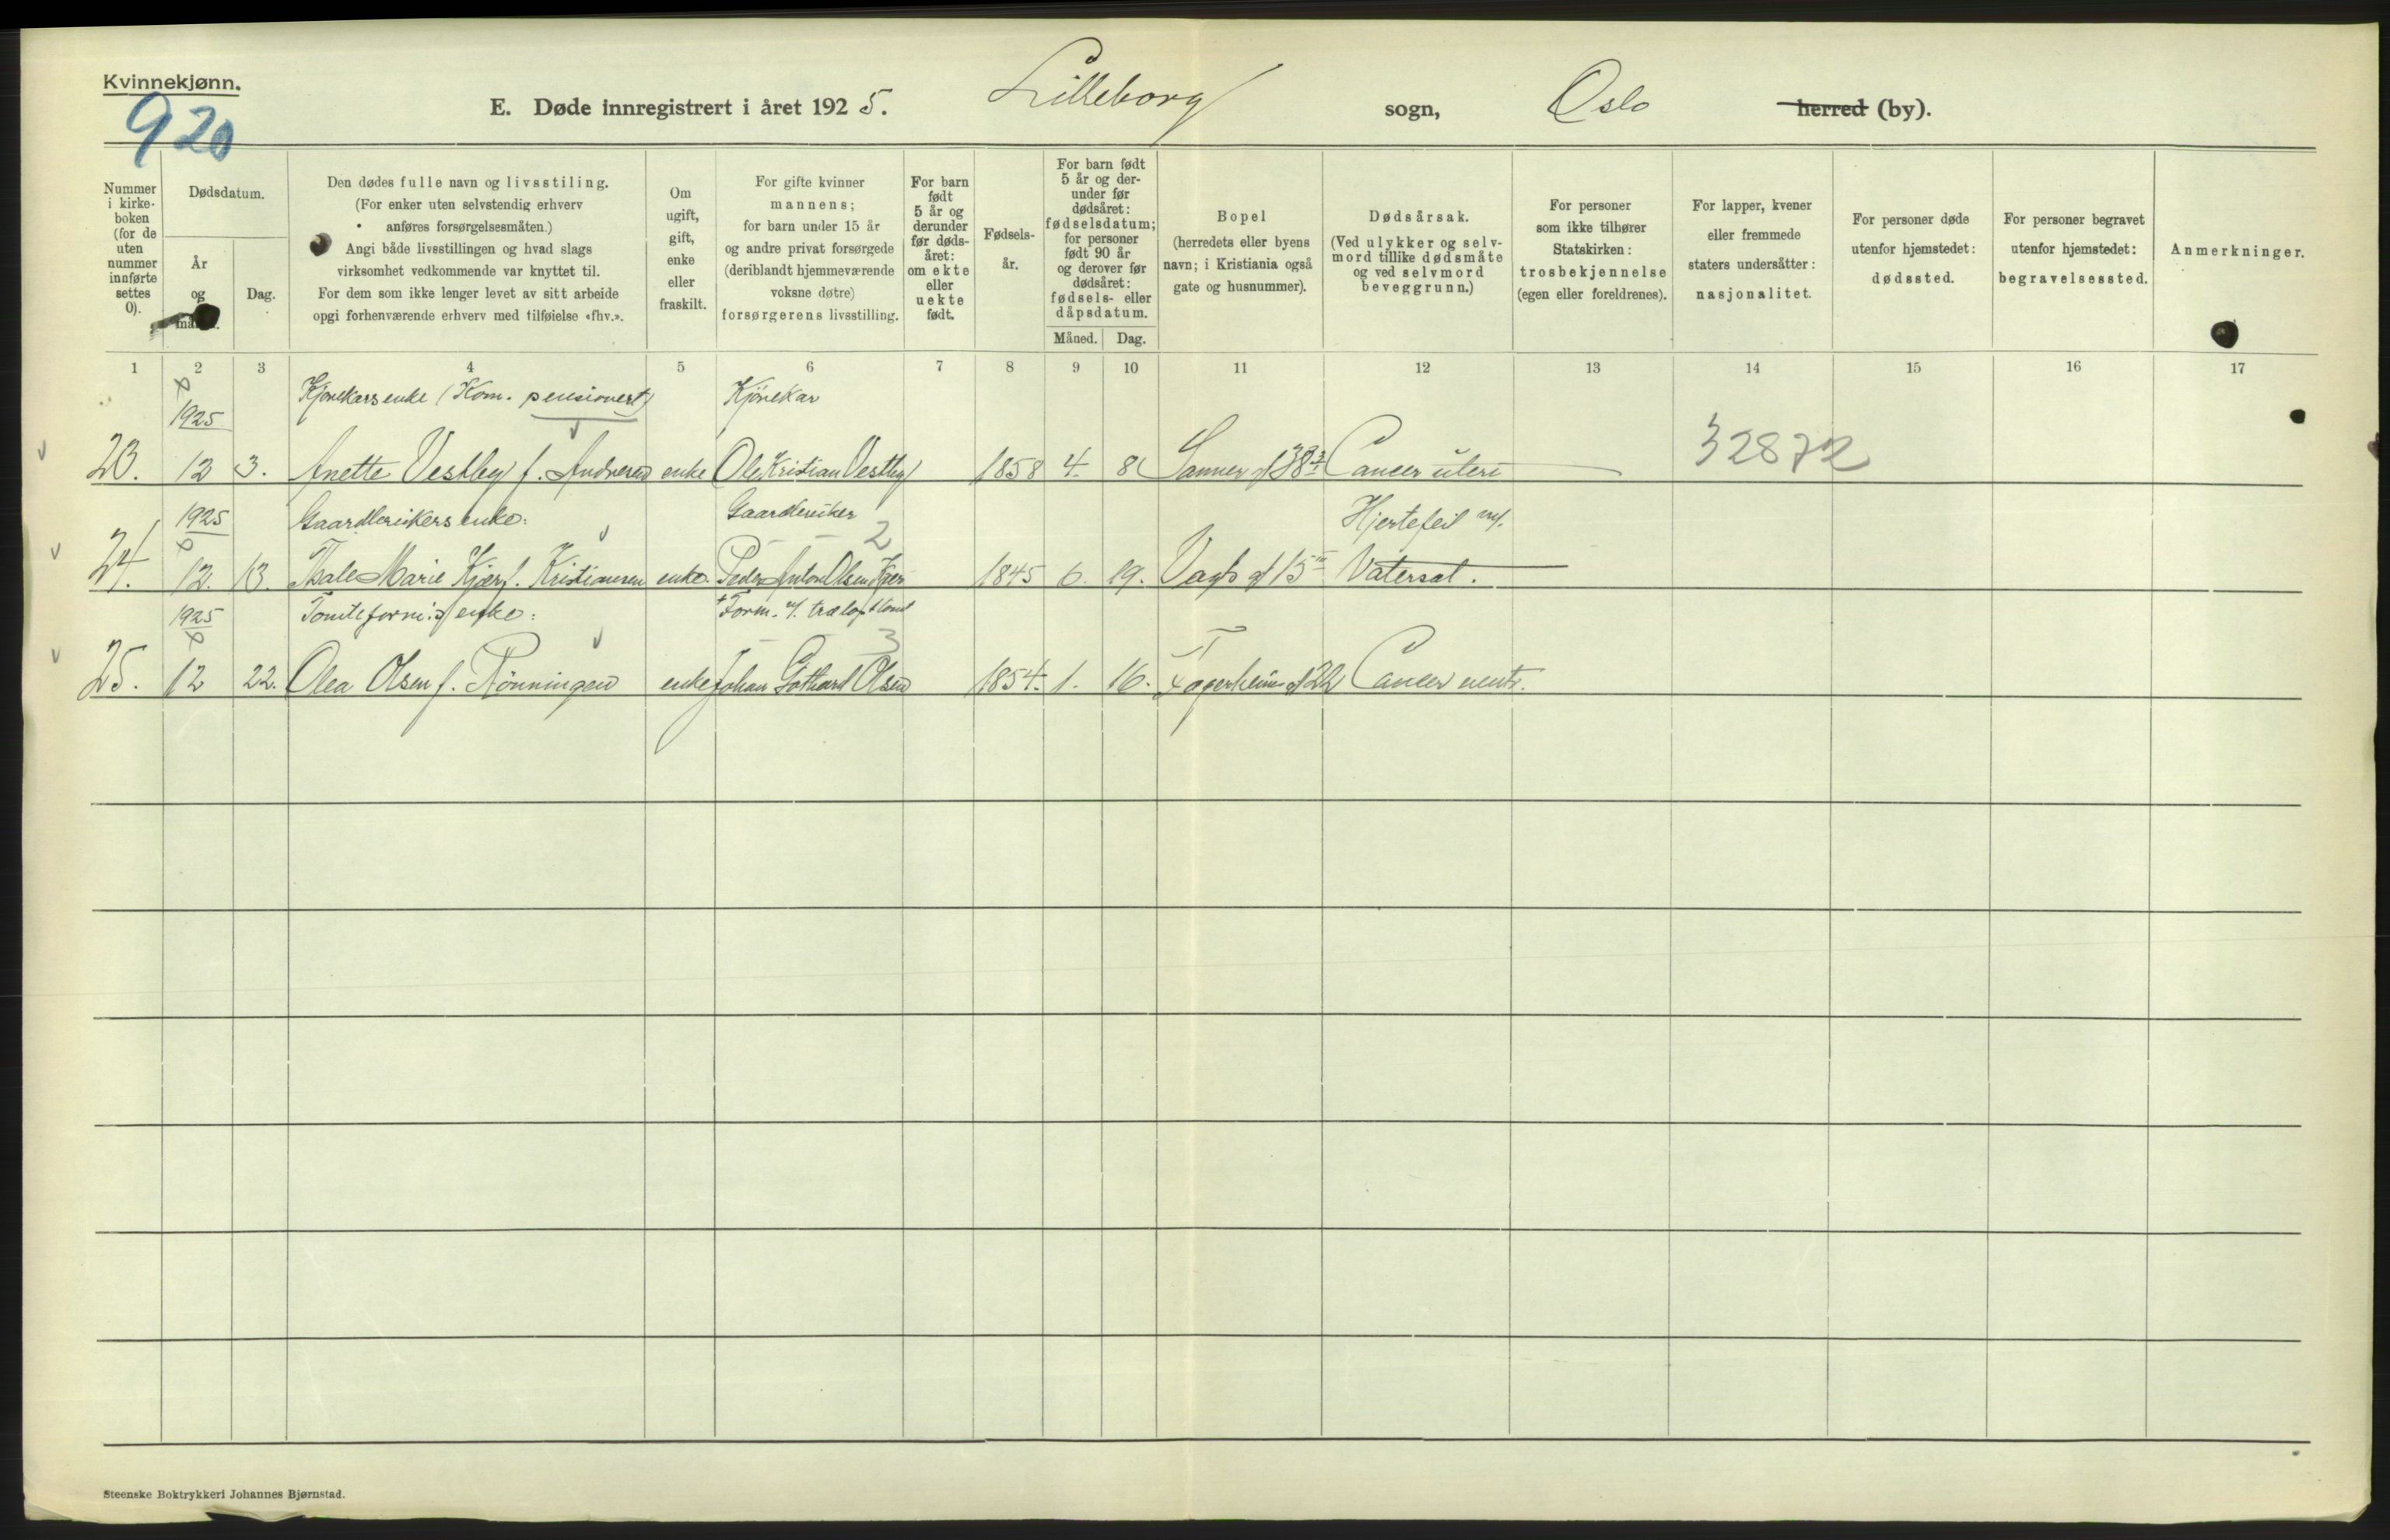 Kvinnekjønn.
920
E. Døde innregistrert i året 1925. Lilleborg sogn, Oslo herred (by).
Nummer i kirke- boken (for de uten nummer innførte settes 0).
Dødsdatum.
År og
Dag.
Den dødes fulle navn og livsstiling.
(For enker uten selvstendig erhverv
anføres forsørgelsesmåten.)
Angi både livsstillingen og hvad slags
virksomhet vedkommende var knyttet til.
For dem som ikke lenger levet av sitt arbeide
opgi forhenværende erhverv med tilføielse «fhv.».
Om ugift, gift, enke eller fraskilt.
For gifte kvinner
mannens;
for barn under 15 år
og andre privat forsørgede
(deriblandt hjemmeværende
voksne døtre)
forsørgerens livsstilling.
For barn født 5 år og derunder før døds- året: om ekte eller uekte født.
Fødsels- år.
For barn født 5 år og der- under før dødsåret: fødselsdatum; for personer født 90 år og derover før dødsåret: fødsels- eller dåpsdatum.
Måned. Dag.
Bopel
(herredets eller byens
navn; i Kristiania også
gate og husnummer).
Dødsårsak.
(Ved ulykker og selv-
mord tillike dødsmåte
og ved selvmord
beveggrunn.)
For personer
som ikke tilhører
Statskirken:
trosbekjennelse
(egen eller foreldrenes).
For lapper, kvener
eller fremmede
staters undersåtter:
nasjonalitet.
For personer døde
utenfor hjemstedet:
dødssted.
For personer begravet
utenfor hjemstedet:
begravelsessted.
Anmerkninger.
1 2 3 4 5 6 7 8 9 10 11 12 13 14 15 16 17
1925 Kjørekars enke (Kom. pensionert) Kjörekar
23. 12 3. Anette Vestby f. Andresen enke Ole Kristian Vestby 1858 4. 8 Sanner gt 38 Cancer uteri 32872
1925 Gaardbrukers enke: Gaardbruker 2 Hjertefeil m/.
24. 12. 13. Thale Marie Kjær f. Kristiansen enke. Peder Anton Olsen Kjær 1845 6. 19. Vogts gt 15 Vatersot.
1925 Tomteform.s enke: Form. v/. trælasttomt 3
25. 12 22. Olea Olsen f. Rönningen enke Johan Gothard Olsen 1854. 1. 16. Fagerheim gt 22 Cancer ventr.
Steenske Boktrykkeri Johannes Bjørnstad.